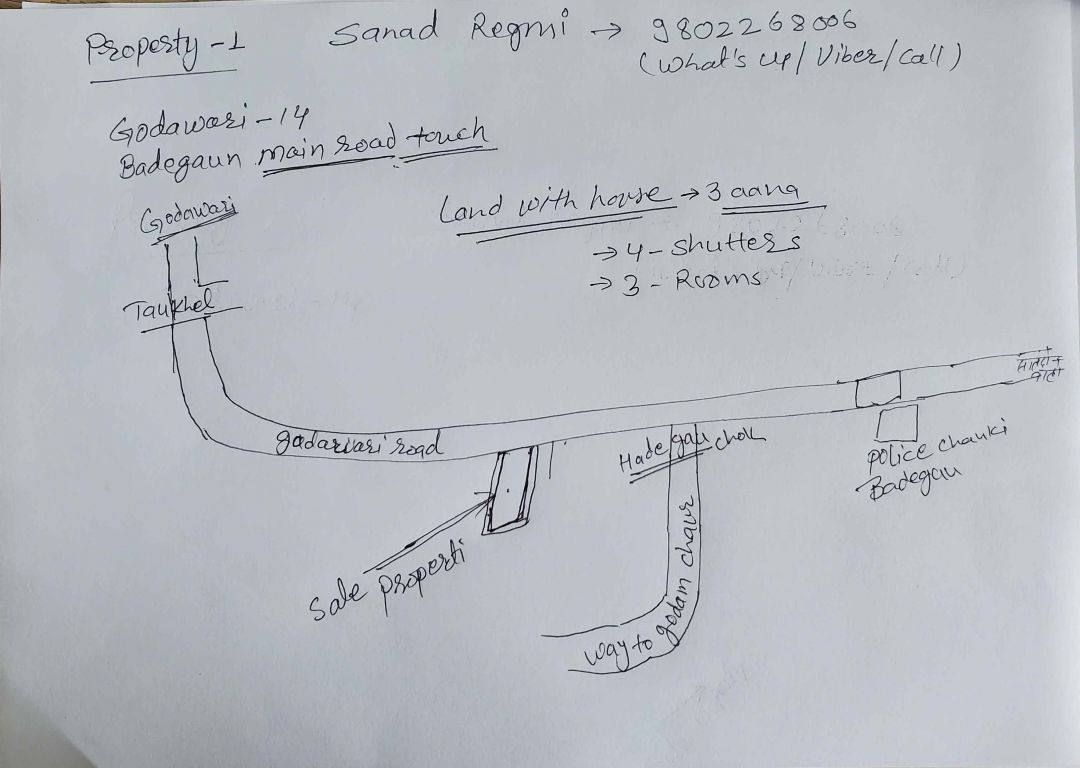 Property-1
Sanad Regmi → 9802268006
(What's up/Viber/Call)
Godawari-14
Badegaun main road touch
Land with house → 3 aana
→ 4 - Shutters
→ 3 - Rooms
Godawari
Taukhel
godarwari road
Hadegau chok
Police chauki
Badegau
Sale properti
way to godam chaur